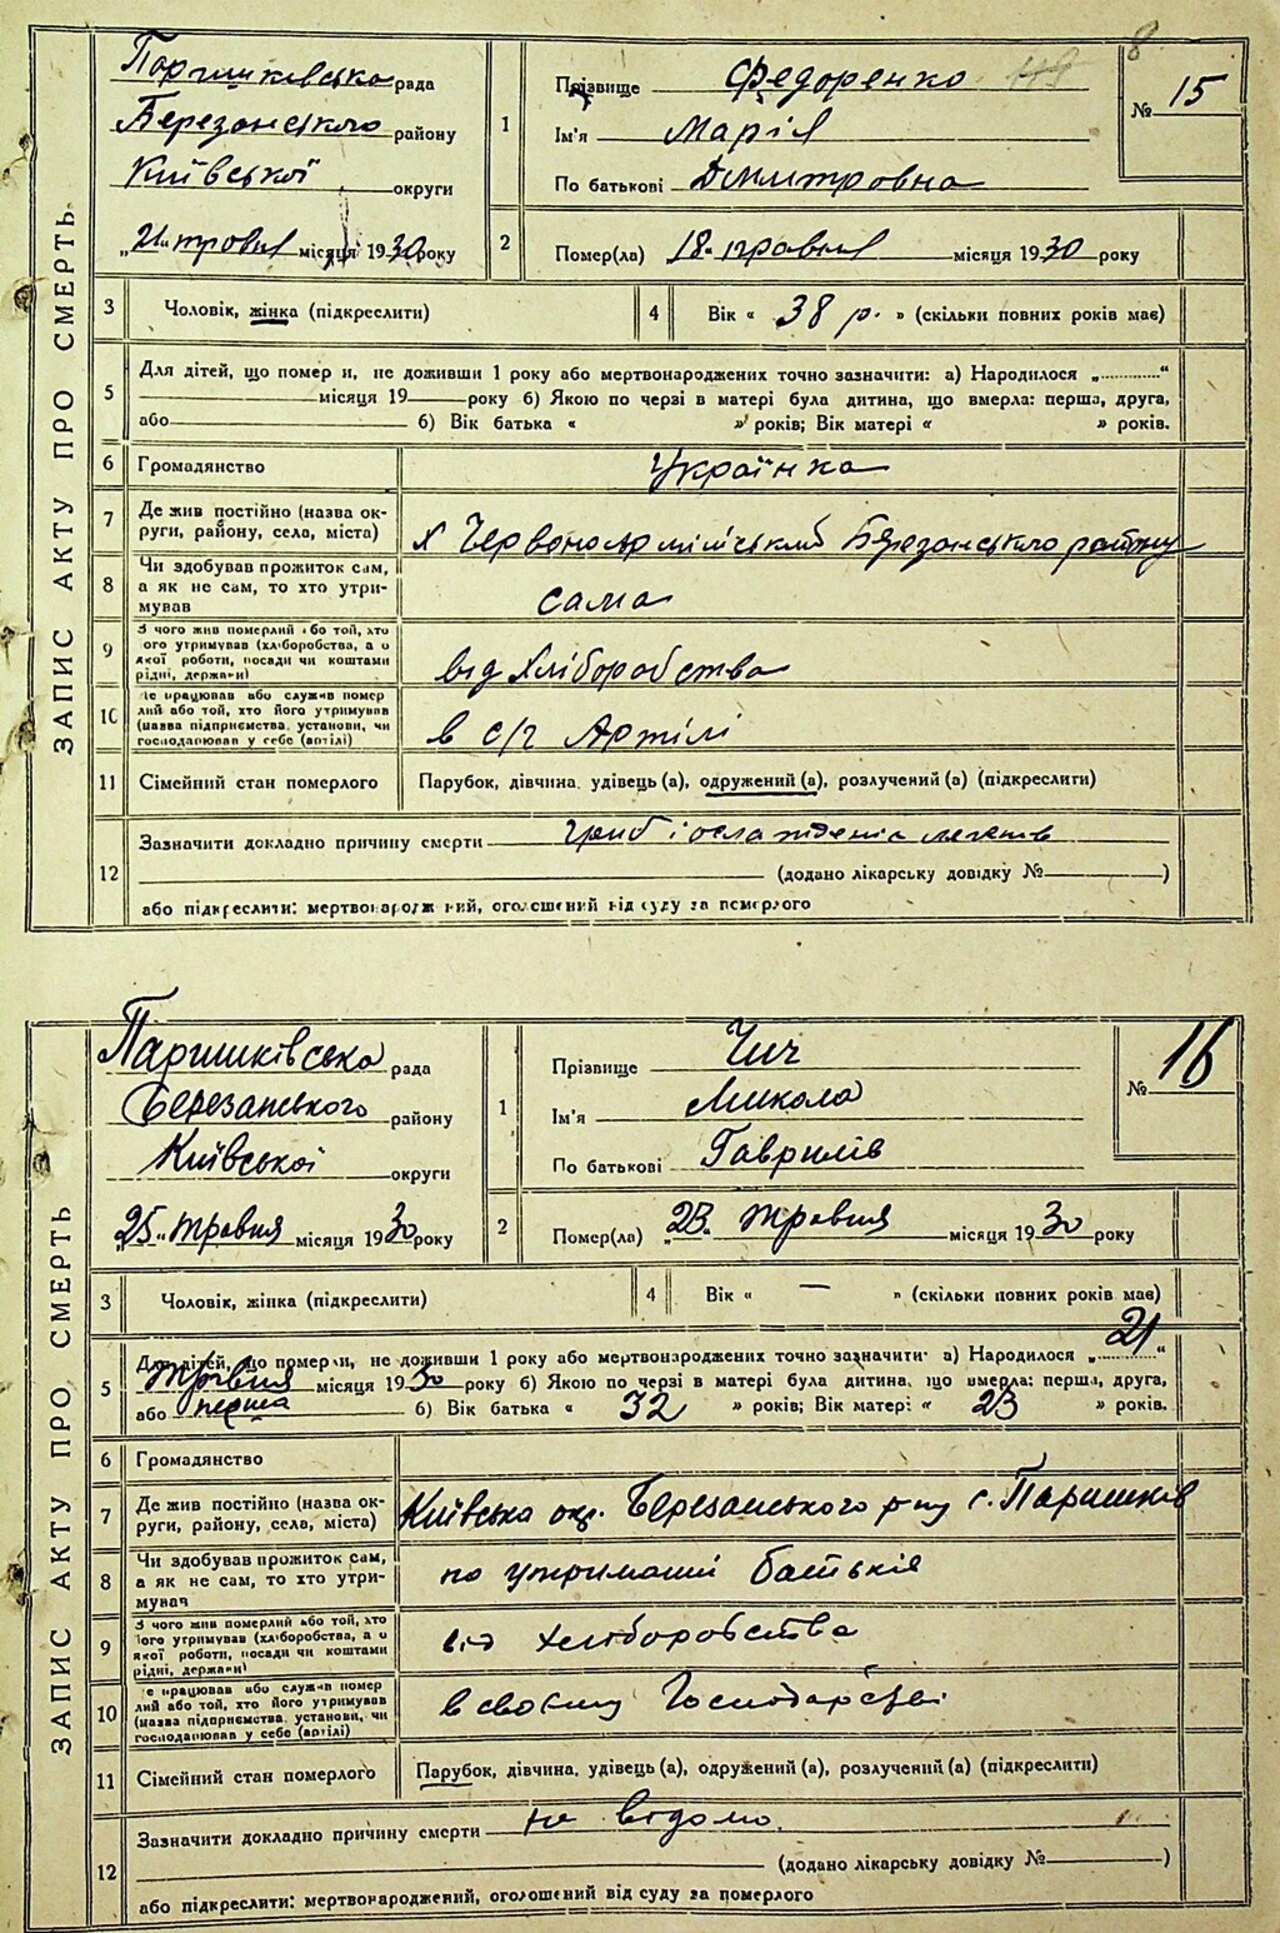 8
ЗАПИС АКТУ ПРО СМЕРТЬ
Паришківська рада
Березанського району
Київської округи
„21“ травня місяця 1930 року
1
Прізвище Федоренко
Ім'я Марія
По батькові Дмитровна
№ 15
2
Помер(ла) „18“ травня місяця 1930 року
3 Чоловік, жінка (підкреслити)
4 Вік « 38 р. » (скільки повних років має)
5
Для дітей, що померли, не доживши 1 року або мертвонароджених точно зазначити: а) Народилося „ “
місяця 19 року б) Якою по черзі в матері була дитина, що вмерла: перша, друга,
або б) Вік батька « » років; Вік матері « » років.
6 Громадянство Українка
7
Де жив постійно (назва ок-
руги, району, села, міста)
х Червоноармійський Березанського району
8
Чи здобував прожиток сам,
а як не сам, то хто утри-
мував
сама
9
З чого жив померлий або той, хто
його утримував (хліборобства, а о
якої роботи, посади чи коштами
рідні, держави)
від Хліборобства
10
Де працював або служив помер
лий або той, хто його утримував
(назва підприємства, установи, чи
господарював у себе (артілі)
в с/г Артілі
11 Сімейний стан померлого Парубок, дівчина, удівець (а), одружений (а), розлучений (а) (підкреслити)
12
Зазначити докладно причину смерти легенів
(додано лікарську довідку № )
або підкреслити: мертвонароджений, оголошений від суду за померлого
ЗАПИС АКТУ ПРО СМЕРТЬ
Паришківська рада
Березанського району
Київської округи
„25“ травня місяця 1930 року
1
Прізвище Чич
Ім'я Микола
По батькові Гаврилів
№ 16
2
Помер(ла) „23“ травня місяця 1930 року
3 Чоловік, жінка (підкреслити)
4 Вік « — » (скільки повних років має)
5
Для дітей, що померли, не доживши 1 року або мертвонароджених точно зазначити: а) Народилося „21“
травня місяця 1930 року б) Якою по черзі в матері була дитина, що вмерла: перша, друга,
або перша б) Вік батька « 32 » років; Вік матері « 23 » років.
6 Громадянство
7
Де жив постійно (назва ок-
руги, району, села, міста)
Київська окр. Березанського р-ну с. Паришків
8
Чи здобував прожиток сам,
а як не сам, то хто утри-
мувач
на утриманні батьків
9
З чого жив померлий або той, хто
його утримував (хліборобства, а о
якої роботи, посади чи коштами
рідні, держави)
від хліборобства
10
Де працював або служив помер
лий або той, хто його утримував
(назва підприємства, установи, чи
господарював у себе (артілі)
в своєму Господарстві
11 Сімейний стан померлого Парубок, дівчина, удівець (а), одружений (а), розлучений (а) (підкреслити)
12
Зазначити докладно причину смерти не відомо.
(додано лікарську довідку № )
або підкреслити: мертвонароджений, оголошений від суду за померлого